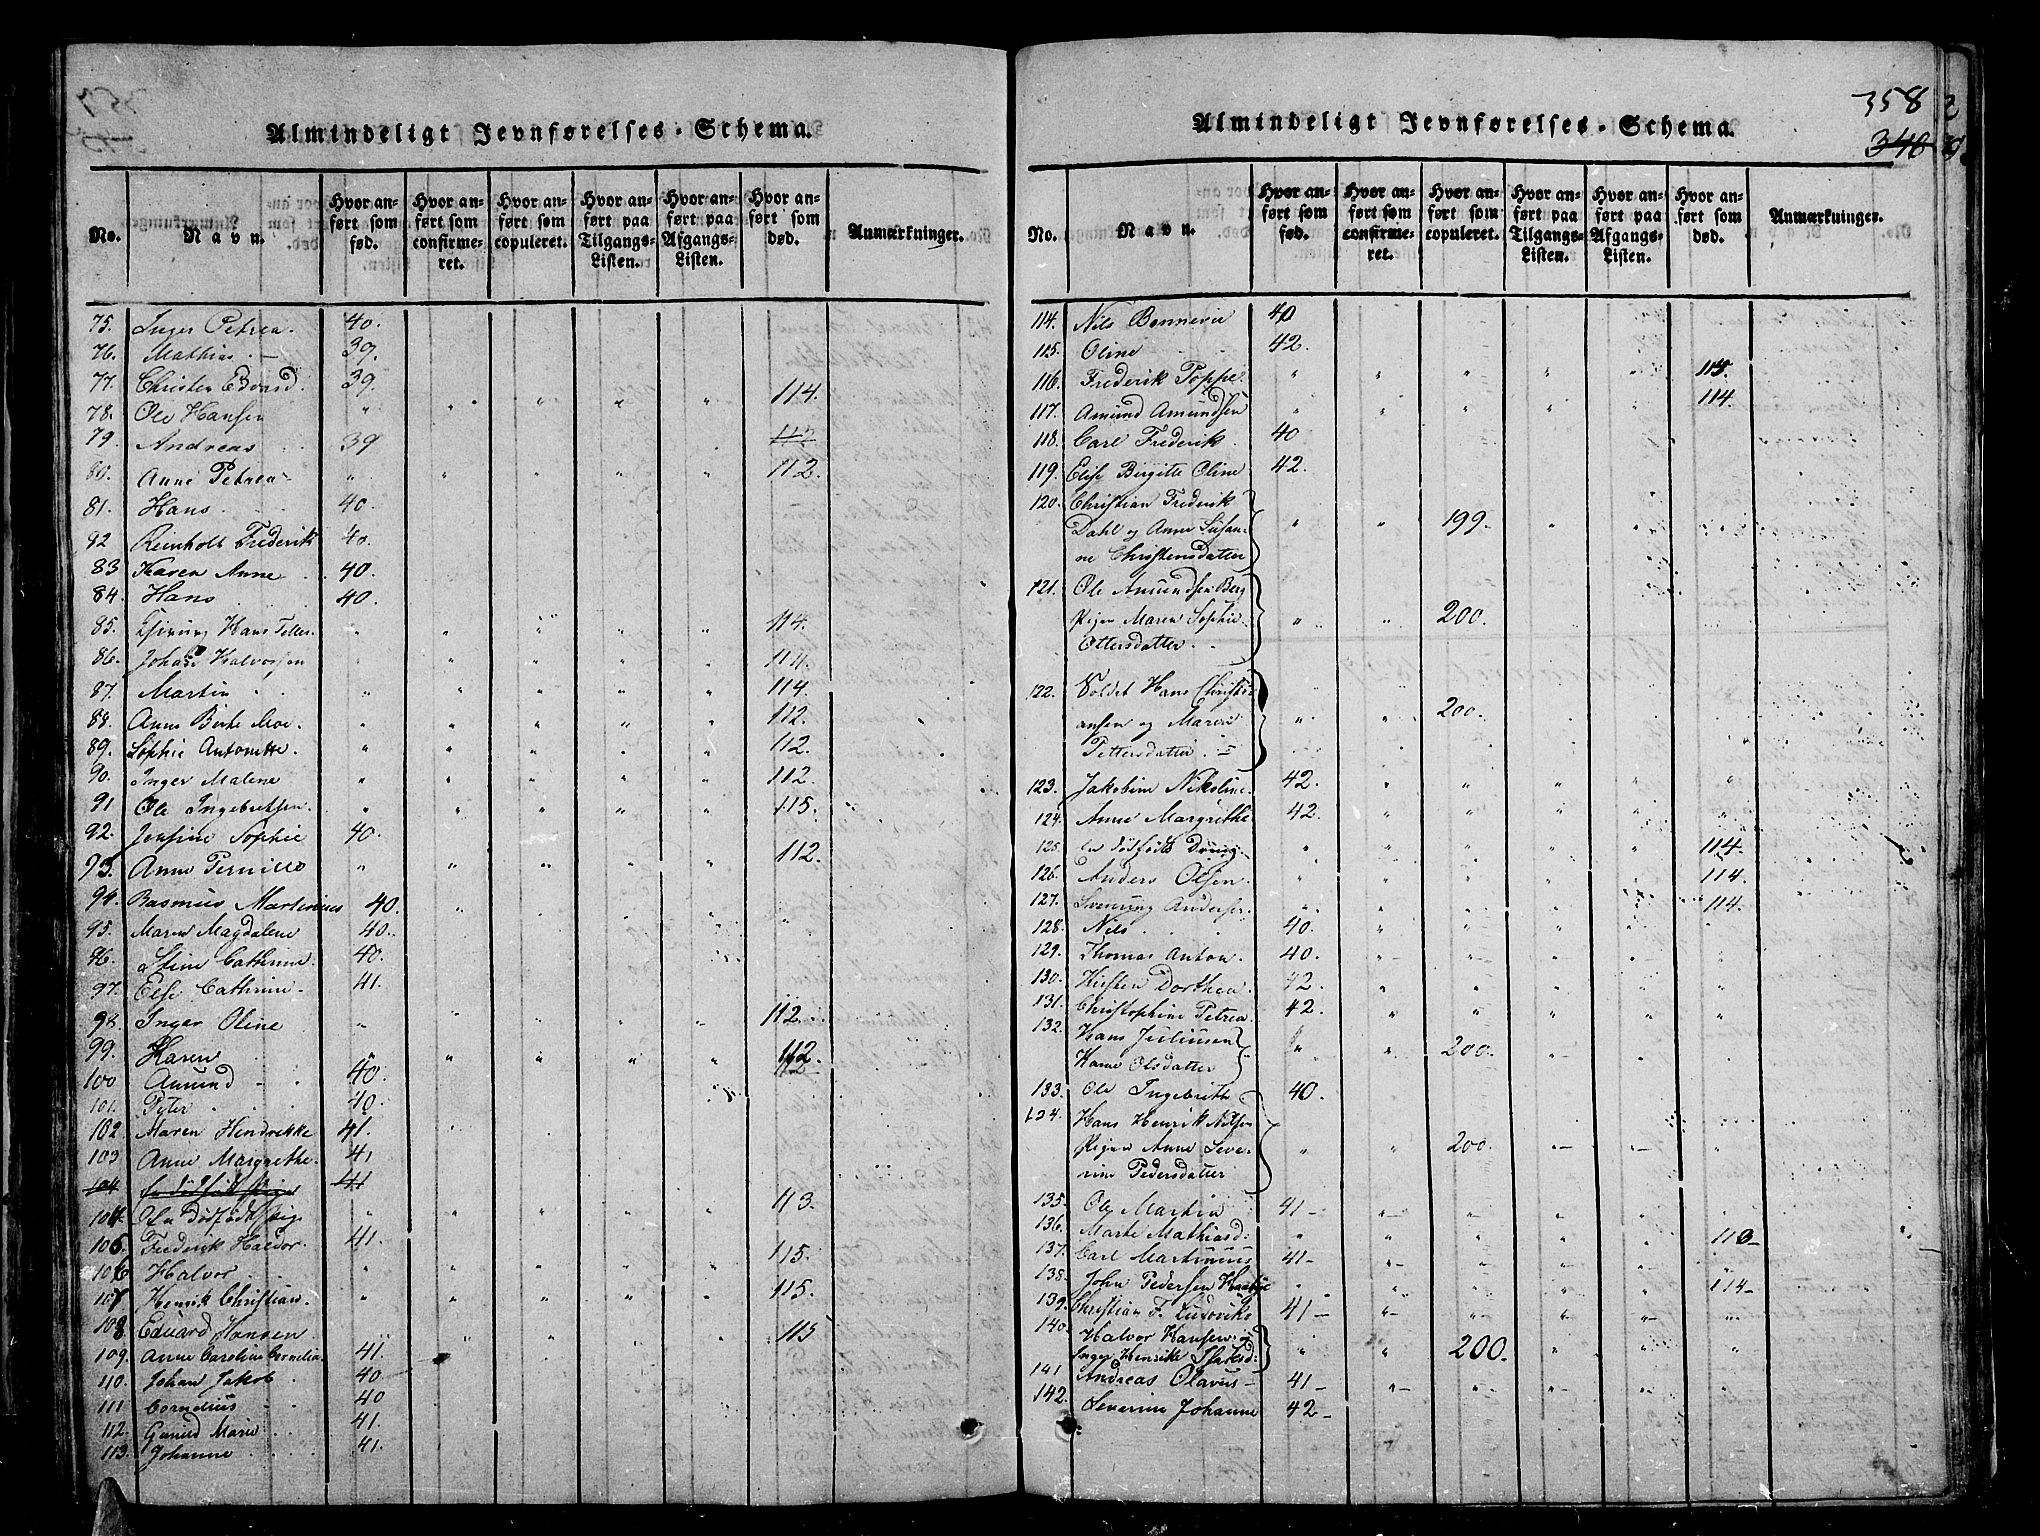 Almindeligt Jevnførelses-Schema.
No. Navn. Hvor anført som fød. Hvor anført som confirmeret. Hvor anført som copuleret. Hvor anført paa Tilgangs-Listen. Hvor anført paa Afgangs-Listen. Hvor anført som død. Anmærkninger.
75. Inger Petrea. 40.
76. Mathias — 39.
77. Christen Edvard. 39.
78. Ole Hansen " " " " " 114.
79. Andreas 39 117
80. Anne Petrea " " " " " 112.
81. Hans 40.
82 Reinholt Frederik 40.
83 Karen Anne 40.
84. Hans 40.
85. Hans " " " " " 114.
86. Johan Halvorsen " " " " " 114.
87. Martin " " " " " 114.
88. Anne Birte Moe " " " " " 112.
89. Sophie Antonette. " " " " " 112.
90. Inger Malene " " " " " 112.
91 Ole Ingebretsen. " " " " " 115.
92. Josine Sophie 40.
93. Anne Pernille " " " " " 112.
94. Rasmus Martinus 40.
95. Maren Magdalene 40.
96. Stine Cathrine. 40.
97. Else Cathrine. 41.
98. Inger Oline " " " " " 112.
99. Karen " " " " " 112.
100 Amund 40.
101. Peter 40.
102 Maren Hendrikke 41.
103 Anne Margrethe. 41
104 En dødfødt Pige 41
104. En Dødfødt Pig " " " " " 113.
105. Frederik Haldor. 41.
106 Halvor " " " " " 115.
107 Henrik Christian. " " " " " 115.
108 Eduard Hansen " " " " " 115
109. Anne Caroline Cornelia. 41.
110. Johan Jakob 40
111 Cornelius 40
112. Gunild Marie 41.
113. Johanne 41.
358
340
Almindeligt Jevnførelses-Schema.
No. Navn. Hvor anført som fød. Hvor anført som confirmeret. Hvor anført som copuleret. Hvor anført paa Tilgangs-Listen. Hvor anført paa Afgangs-Listen. Hvor anført som død. Anmærkninger.
114. Nils Bonnevie 40
115. Oline 42.
116. Frederik Poppe. " " " " " 115.
117. Amund Amundsen " " " " " 114.
118. Carl Frederik. 40
119. Elise Birgitte Oline 42.
120. Christian Frederik
Dahl og Anne Susan- " " 199.
ne Christensdatter
121. Ole Amundsen Berg
Pigen Maren Sophie " " 200.
Ottersdatter
122. Soldat Hans Christi-
ansen og Maren " " 200.
Pettersdatter
123. Jakobine Nikoline 42.
124. Anne Margrethe 42.
125 En dødfødt Dreng " " " " " 114.
126. Anders Olsen. " " " " " 114.
127. Anderse. " " " " " 114.
128. Nils 40.
129. Thomas Anton. 40.
130. Kirsten Dorthea. 42.
131. Christophine Petrea. 42.
132. Hans Juliusen
Karen Olsdatter " " 200.
133. Ole Ingebrith 40.
124. Hans Henrik Nilsen
Pigen Anne Seve- " " 200.
rine Pedersdatter
135. Ole Martin 41-
136. Marte Mathiasd: " " " " " 113-
137. Carl Martinius 41-
138. John Pedersen " " " " " 114-
139. Christian F. Ludovik 41-
140. Halvor Hansen og
Inger Henrike " " 200.
141 Andreas Olavus 41-
142. Severine Johanne 42-